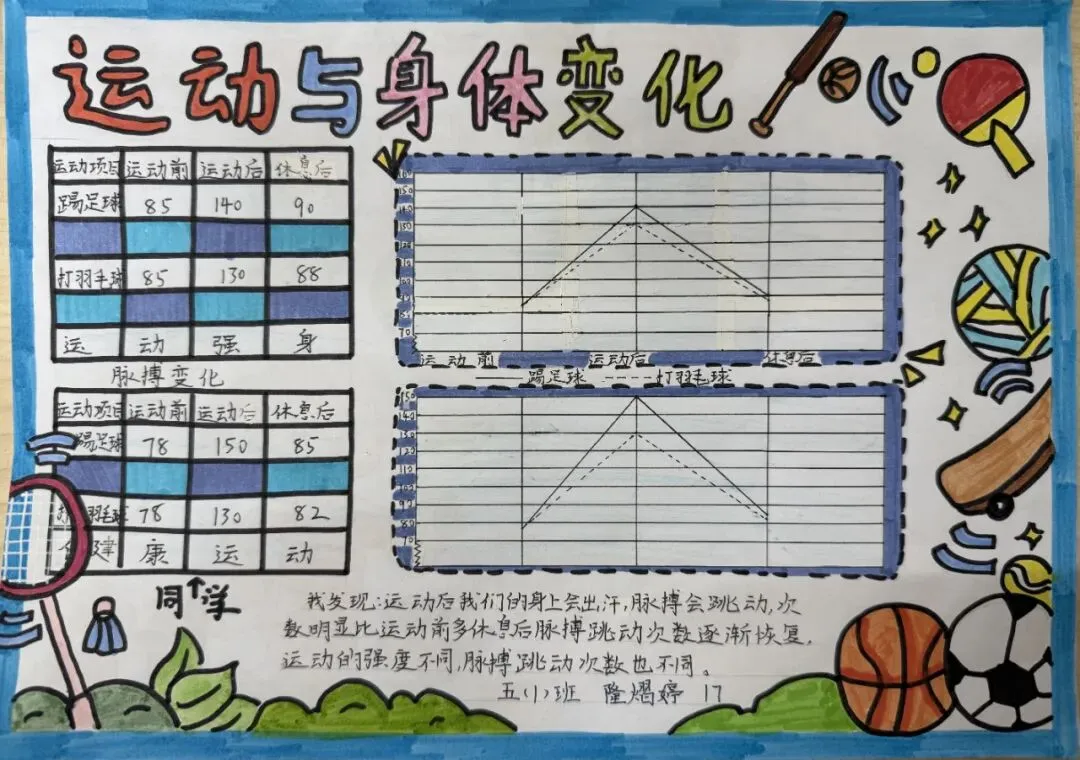 运动与身体变化
运动项目 运动前 运动后 休息后
踢足球 85 140 90
打羽毛球 85 130 88
运 动 强 身
脉搏变化
运动项目 运动前 运动后 休息后
踢足球 78 150 85
羽毛球 78 130 82
健 康 运 动
同学
运动前 运动后 休息后
踢足球 打羽毛球
150
140
130
120
110
100
90
80
70
我发现:运动后我们的身上会出汗,脉搏会跳动,次
数明显比运动前多休息后脉搏跳动次数逐渐恢复,
运动的强度不同,脉搏跳动次数也不同。
五(1)班 隆熠婷 17